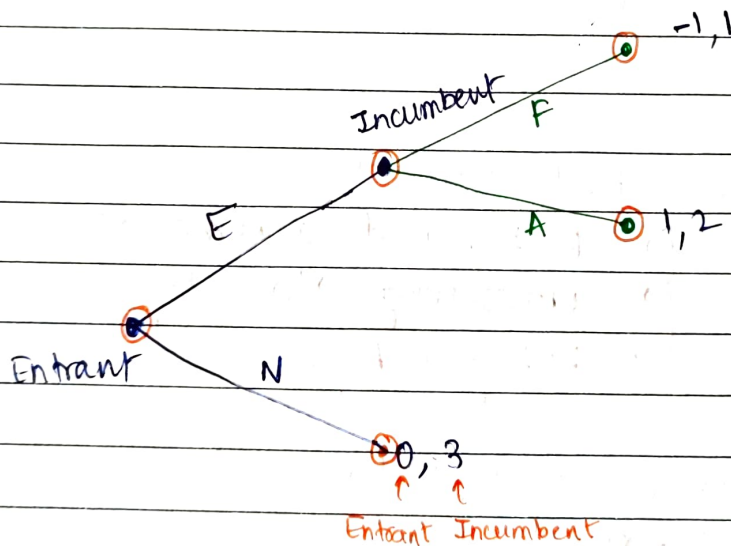 -1, 1
Incumbent
F
E
A
1, 2
Entrant
N
0, 3
↑ ↑
Entrant Incumbent